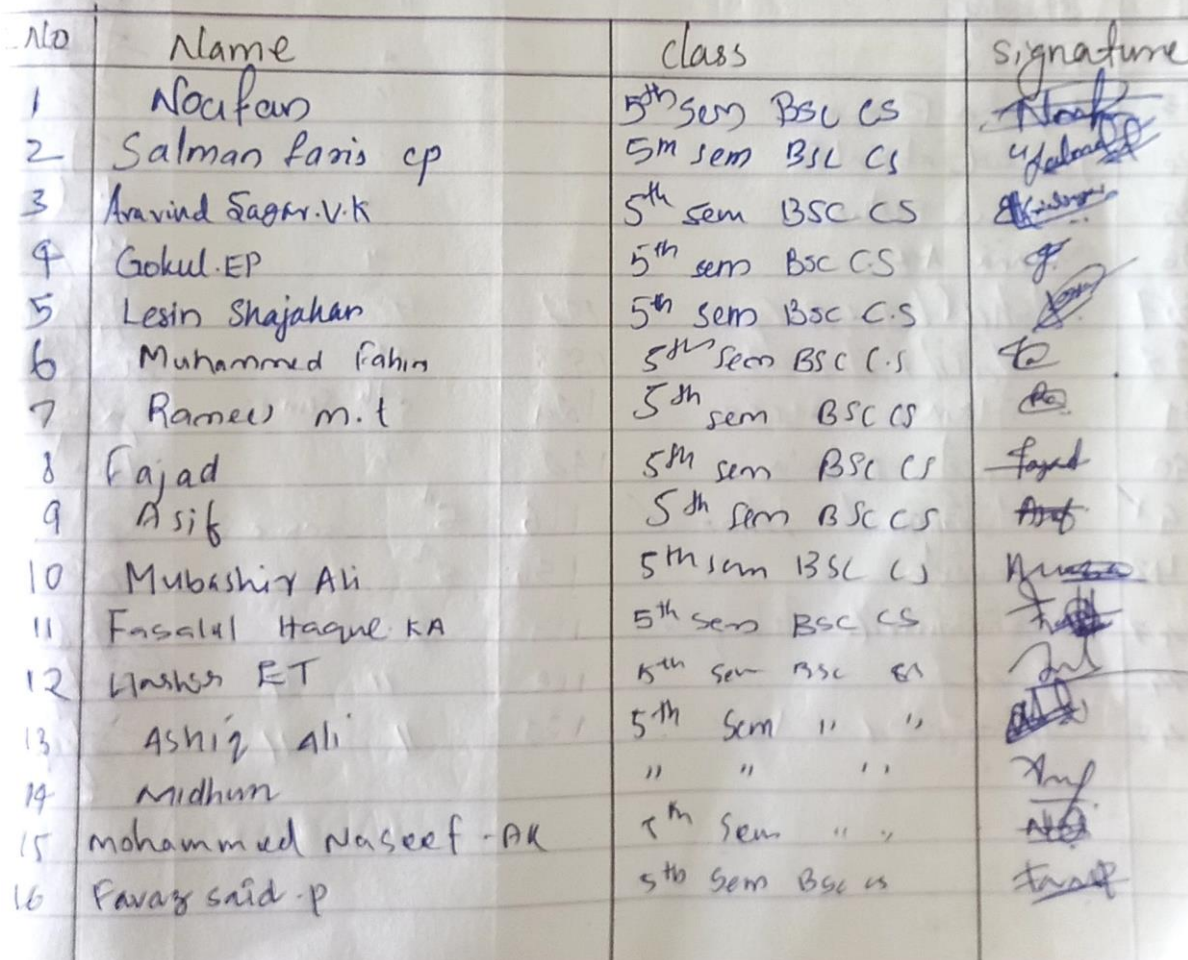 No Name class signature
1 Noufan 5th sem BSC CS
2 Salman faris cp 5th sem BSC CS
3 Aravind Sagar.V.K 5th sem BSC CS
4 Gokul.EP 5th sem BSC CS
5 Lesin Shajahan 5th sem BSC C.S
6 Muhammed Fahim 5th sem BSC C.S
7 m.t 5th sem BSC CS
8 Fajad 5th sem BSC CS Fajad
9 Asif 5th sem BSC CS Asif
10 Mubashir Ali 5th sem BSC CS
11 Fasalul Haque KA 5th sem BSC CS
12 ET 5th sem BSC
13 Ashiq Ali 5th Sem " "
14 Midhun " " "
15 Mohammed Naseef -AK 5th Sem " "
16 Favaz said .p 5th Sem BSC CS